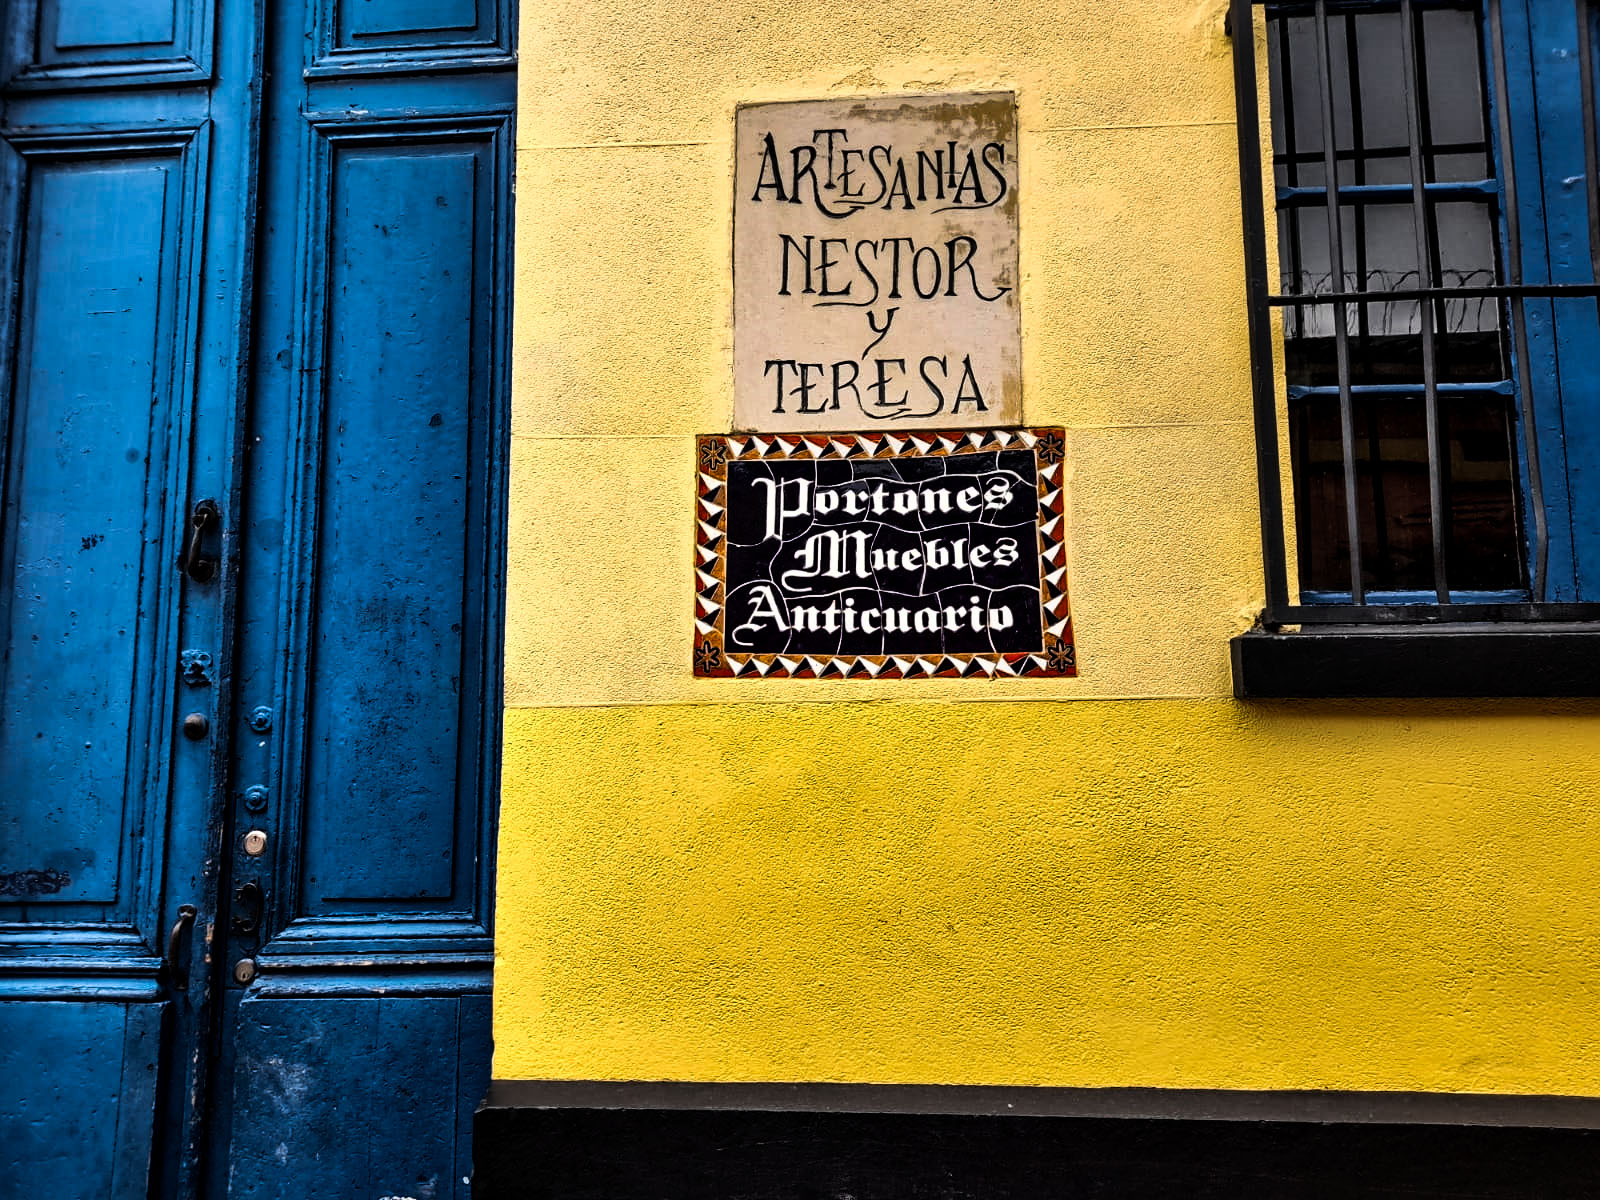 ARTESANIAS
NESTOR
y
TERESA
Portones
Muebles
Anticuario